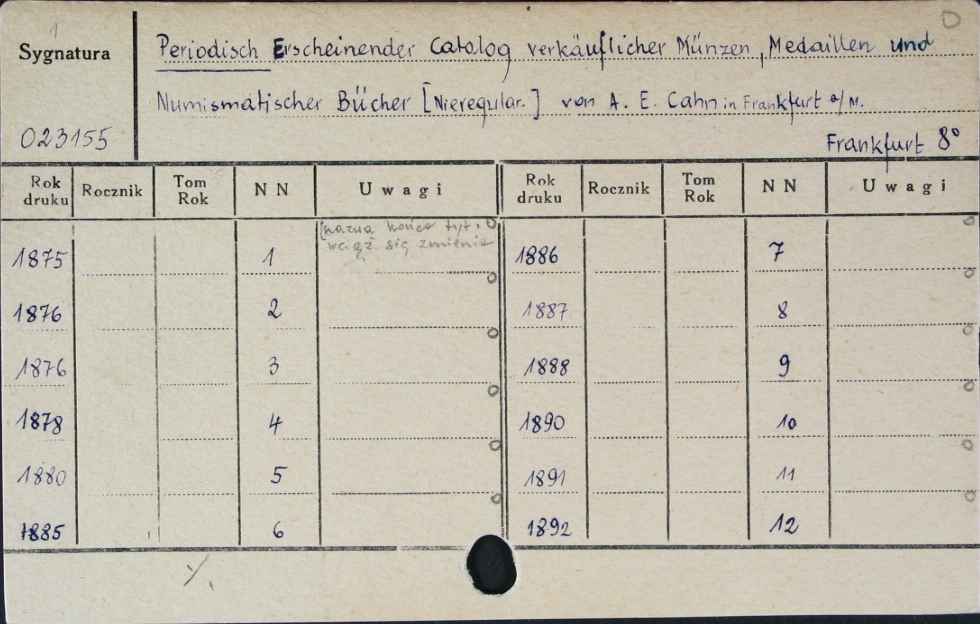 1
Sygnatura
023155
Periodisch Erscheinender Catalog verkäuflicher Münzen, Medaillen und
Numismatischer Bücher [Nieregular.] von A. E. Cahn in Frankfurt a/M.
Frankfurt 8°
Rok druku Rocznik Tom Rok NN Uwagi Rok druku Rocznik Tom Rok NN Uwagi
końca tyt.
wciąż się zmienia
1875 1 1886 7
1876 2 1887 8
1876 3 1888 9
1878 4 1890 10
1880 5 1891 11
1885 6 1892 12